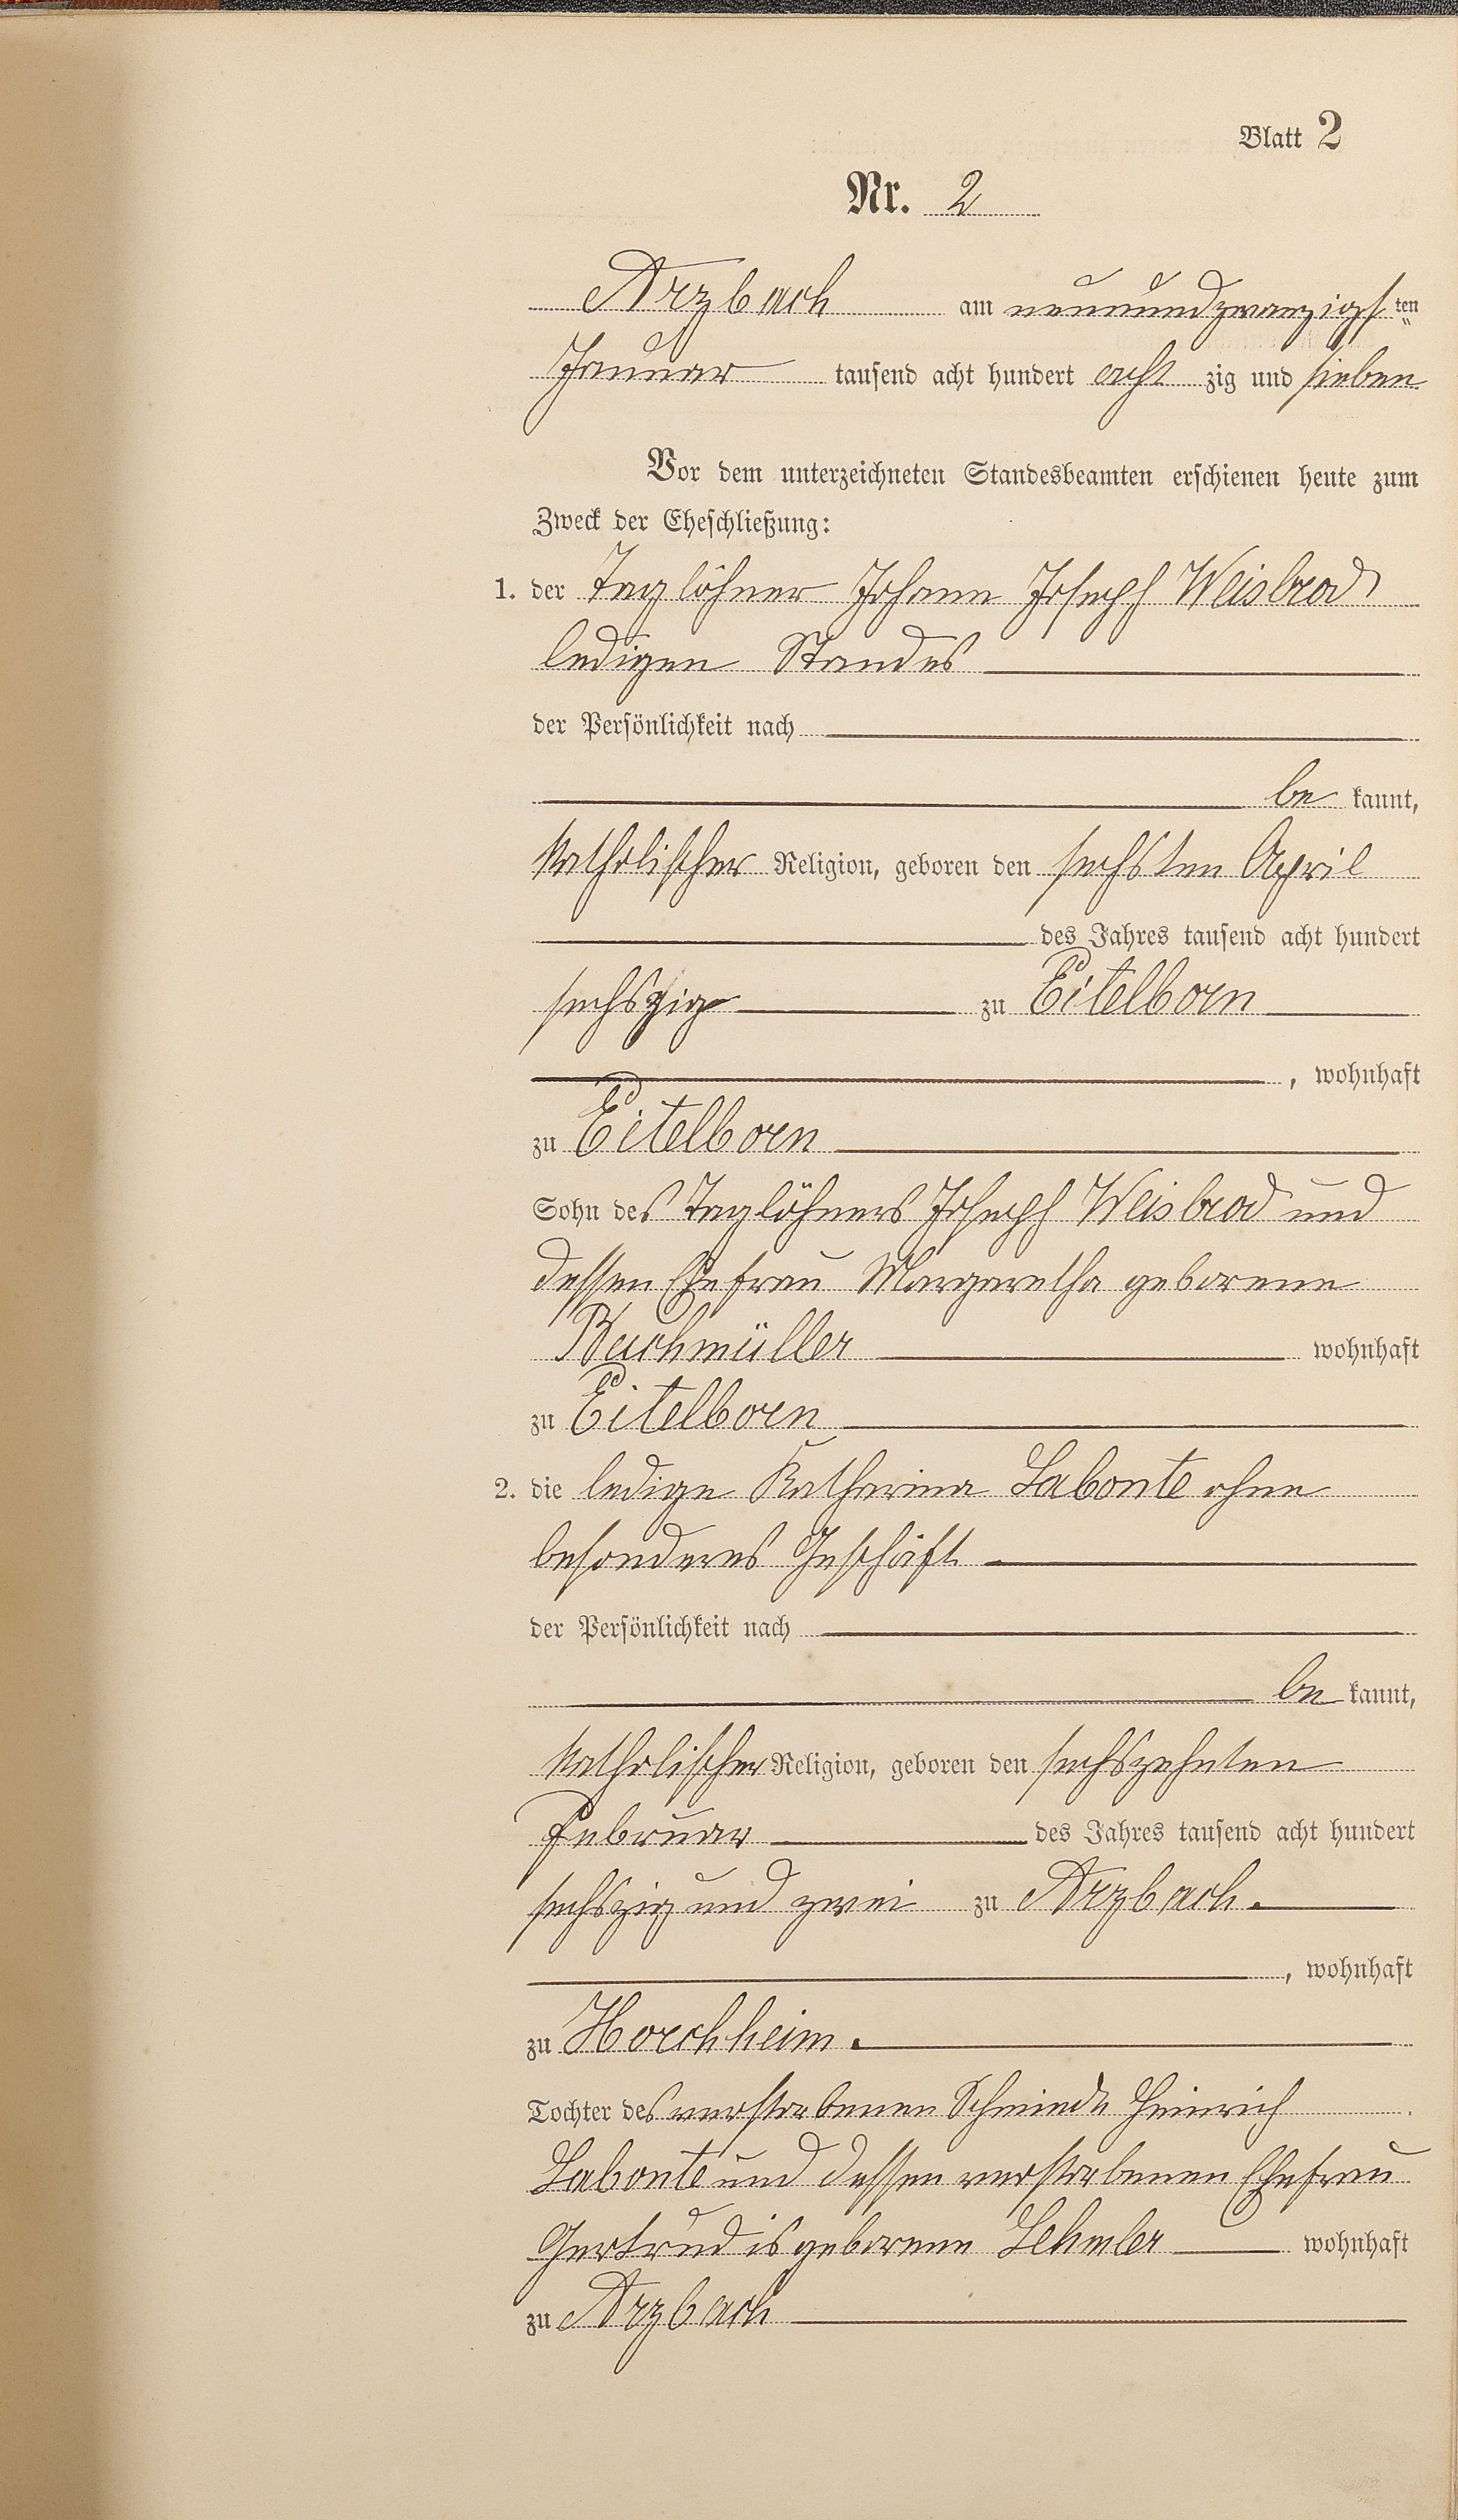 Blatt 2
Nr. 2
Arzbach am neunundzwanzigsten
Januar tausend acht hundert acht zig und sieben
Vor dem unterzeichneten Standesbeamten erschienen heute zum
Zweck der Eheschließung:
1. der Taglöhner Johann Joseph Weisbrod
ledigen Standes
der Persönlichkeit nach
be kannt,
katholischer Religion, geboren den sechsten April
des Jahres tausend acht hundert
sechszig zu Eitelborn
, wohnhaft
zu Eitelborn
Sohn des Taglöhners Joseph Weisbrod und
dessen Ehefrau Margaretha geborene
Bachmüller wohnhaft
zu Eitelborn
2. die ledige Katharina Labonte ohne
besonderes Geschäft
der Persönlichkeit nach
be kannt,
katholischer Religion, geboren den sechszehnten
Februar des Jahres tausend acht hundert
sechszig und zwei zu Arzbach.
, wohnhaft
zu Horchheim.
Tochter des verstorbenen Schmieds Heinrich
Labonte und dessen verstorbenen Ehefrau
Gertrudis geborene Lehmler wohnhaft
zu Arzbach